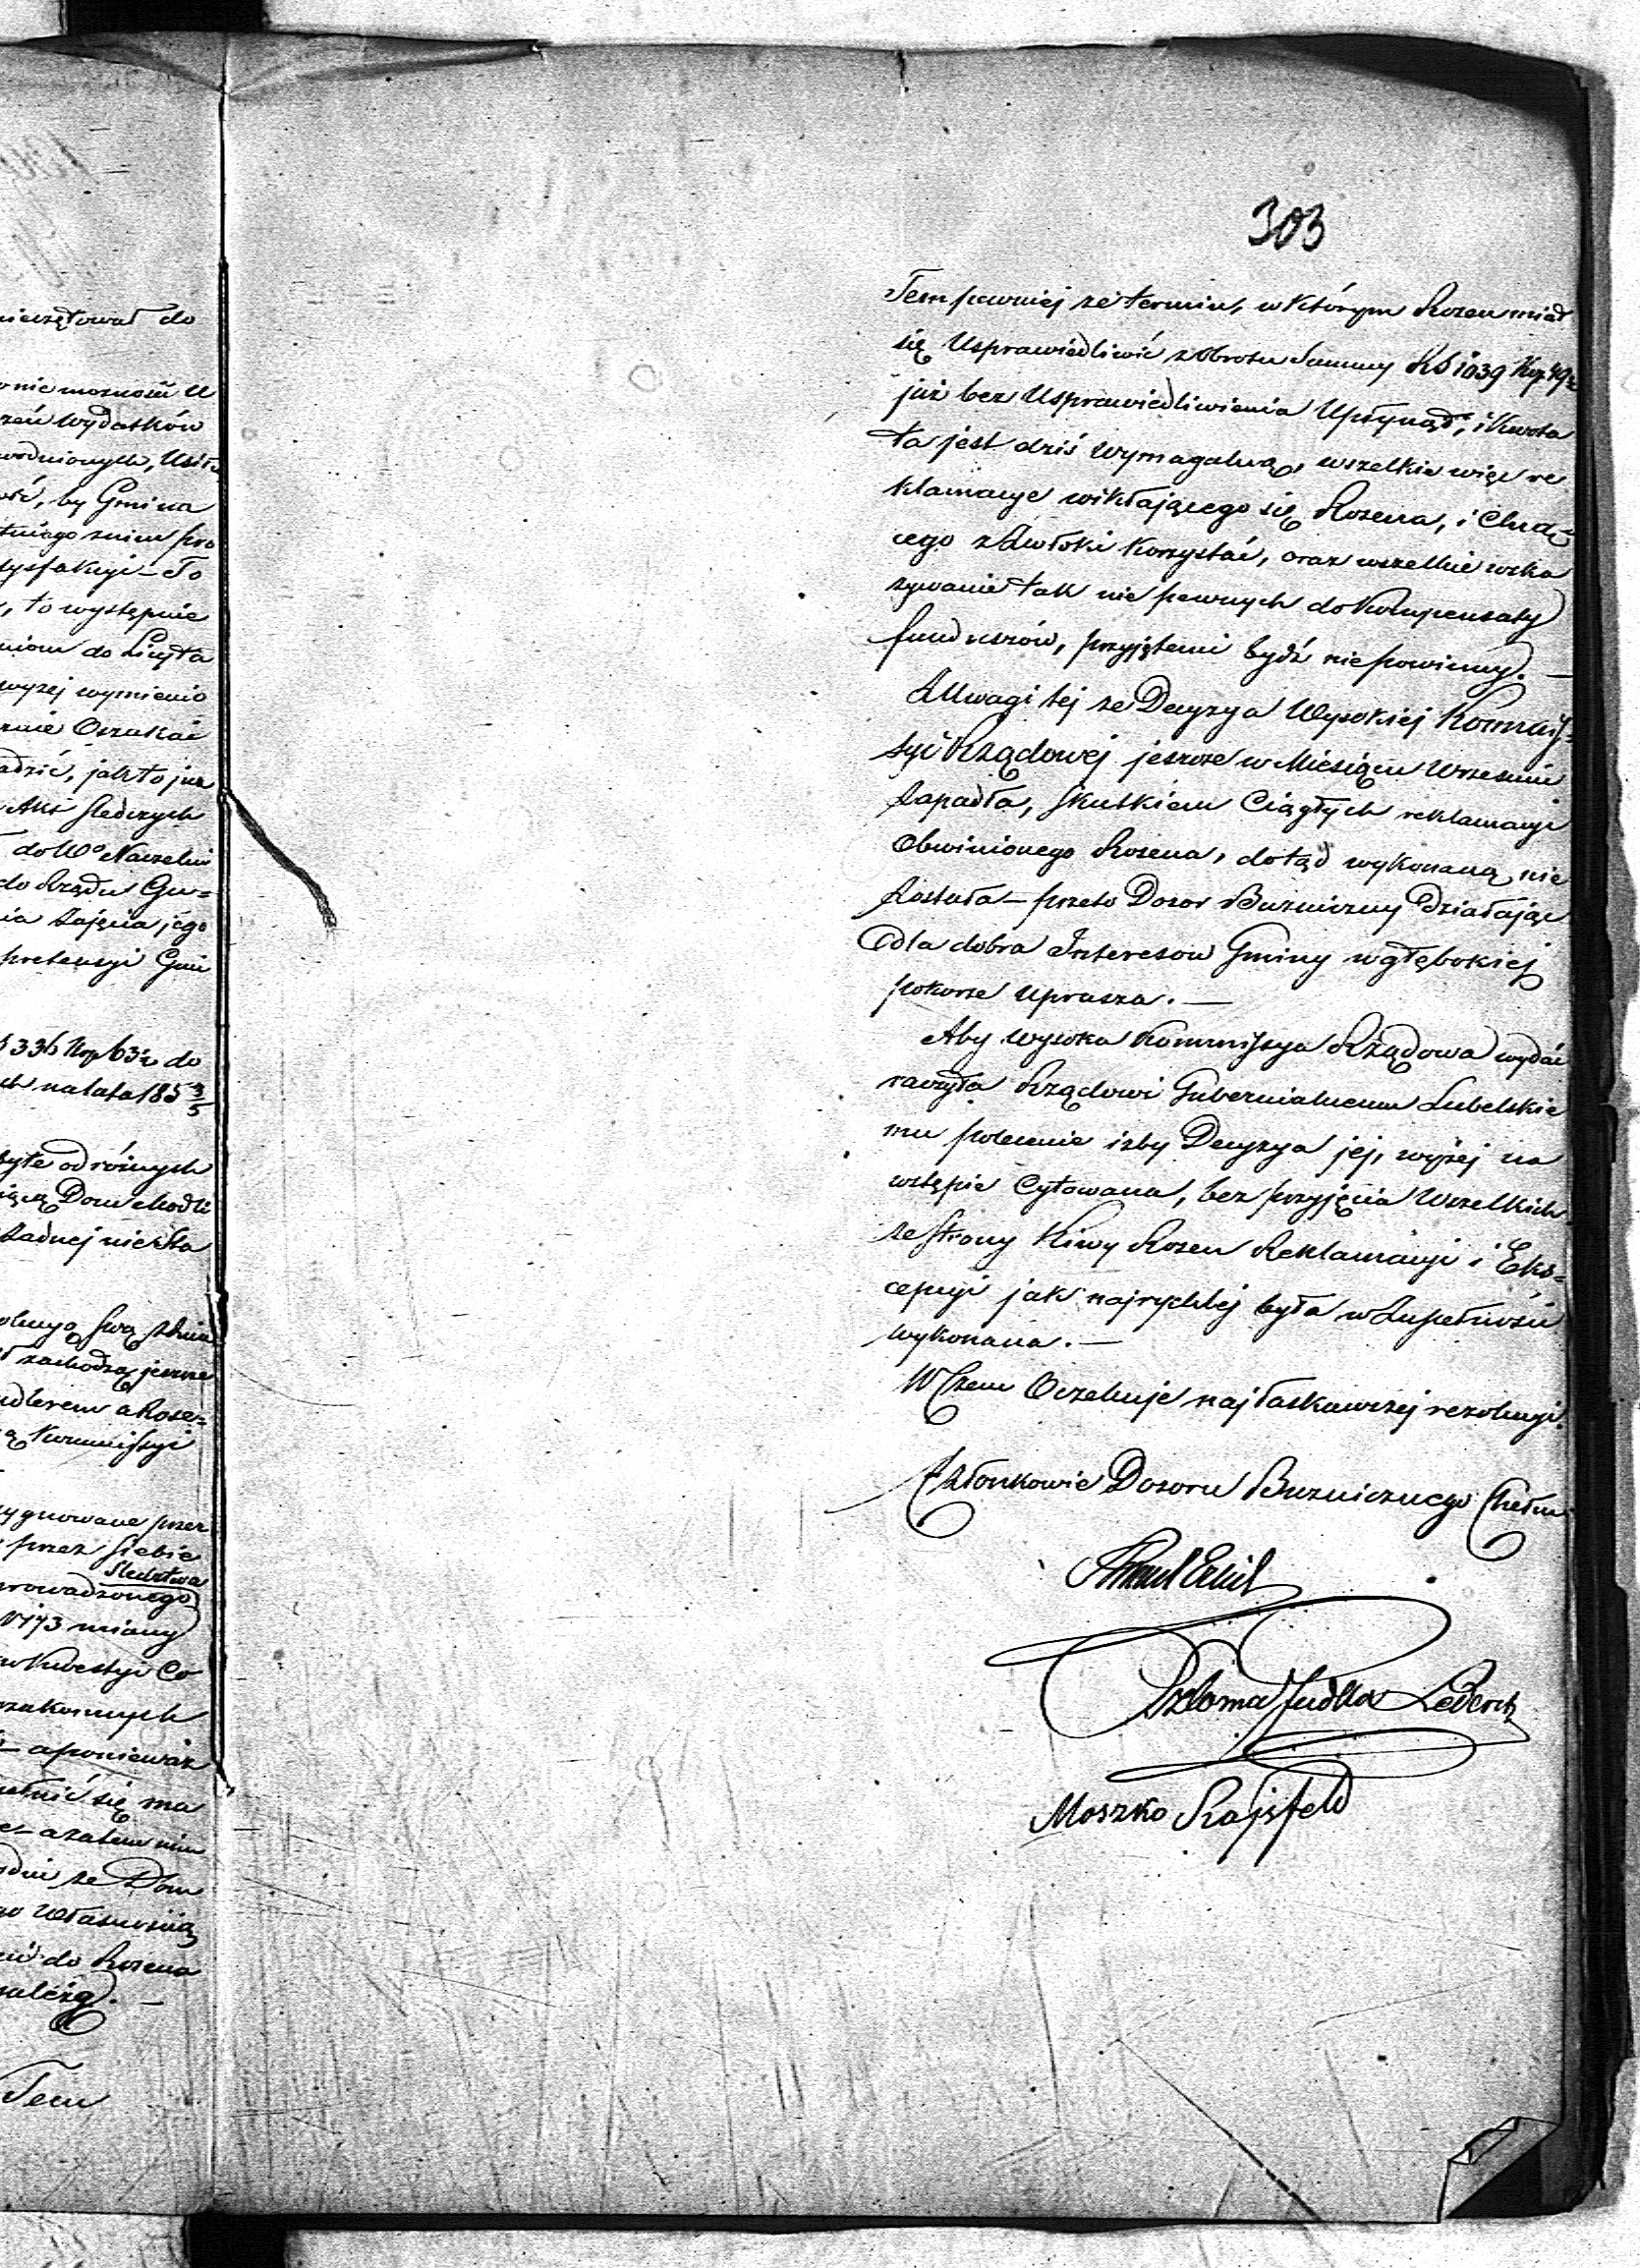 nieczętował do
nie możności U
wydatków
by Gmina
tysfakcyi – To
to występnie
do Licyta
wyżej wymienio
Oczekać
adzić, jak to już
Akt śledczych
do Wº Naczelni
do Rządu Gu=
ia Zajęcia jego
pretensyi Gmi
336 Kop 63½ do
ch na lata 185 3/5
byłe od różnych
Dom modli
żadnej nie
swą
zachodzą jeszcze
a Rose=
Kommissyi
ygnowane przez
przez siebie
śledztwa
rowadzonego
N 173 miany
Kwestyi Co
– a ponieważ
się ma
– a zatem
że Dom
Własnością
do Rosena
należą. –
Tem
303
Tem pewniej że termin, w którym Rosen miał
się Usprawiedliwić z Obrotu Summy RS 1039 Kop 49½
już bez Usprawiedliwienia Upłynął, i Kwota
ta jest dziś Wymagalną, wszelkie więc re
klamacye wikłającego się Rosena, i Chcą=
cego z Zwłoki Korzystać, oraz wszelkie wska
zywanie tak nie pewnych do Kompensaty
funduszów, przyjętemi bydź nie powinny. –
Z Uwagi tej że Decyzya Wysokiej Kommis=
syi Rządowej jeszcze w Miesiącu Wrześniu
Zapadła, skutkiem Ciągłych reklamacyi
Obwinionego Rosena, dotąd wykonaną nie
Została – przeto Dozor Bużniczny Działając
dla dobra Interesow Gminy w głębokiej
pokorze uprasza. –
Aby wysoka Kommissya Rządowa wydać
raczyła Rządowi Gubernialnemu Lubelskie
mu polecenie iżby Decyzya jej, wyżej na
wstępie Cytowana, bez przyjęcia Wszelkich
ze strony Kiwy Rosen Reklamacyi i Eks=
cepcyi jak najrychlej była w Zupełności
wykonana. –
W Czem Oczekuje najłaskawszej rezolucyi.
Członkowie Dozoru Bużnicznego Chełm
Szloma Judka Lederch
Moszko Rajsfeld